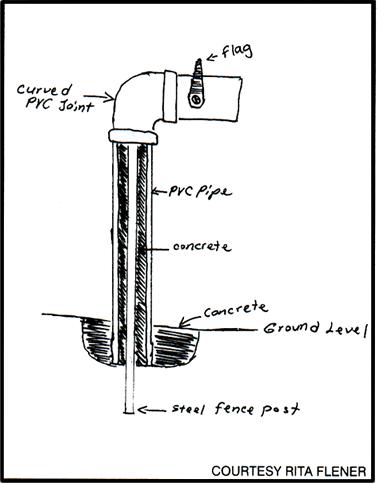 flag
Curved
PVC Joint
PVC Pipe
concrete
concrete
Ground Level
steel fence post
COURTESY RITA FLENER